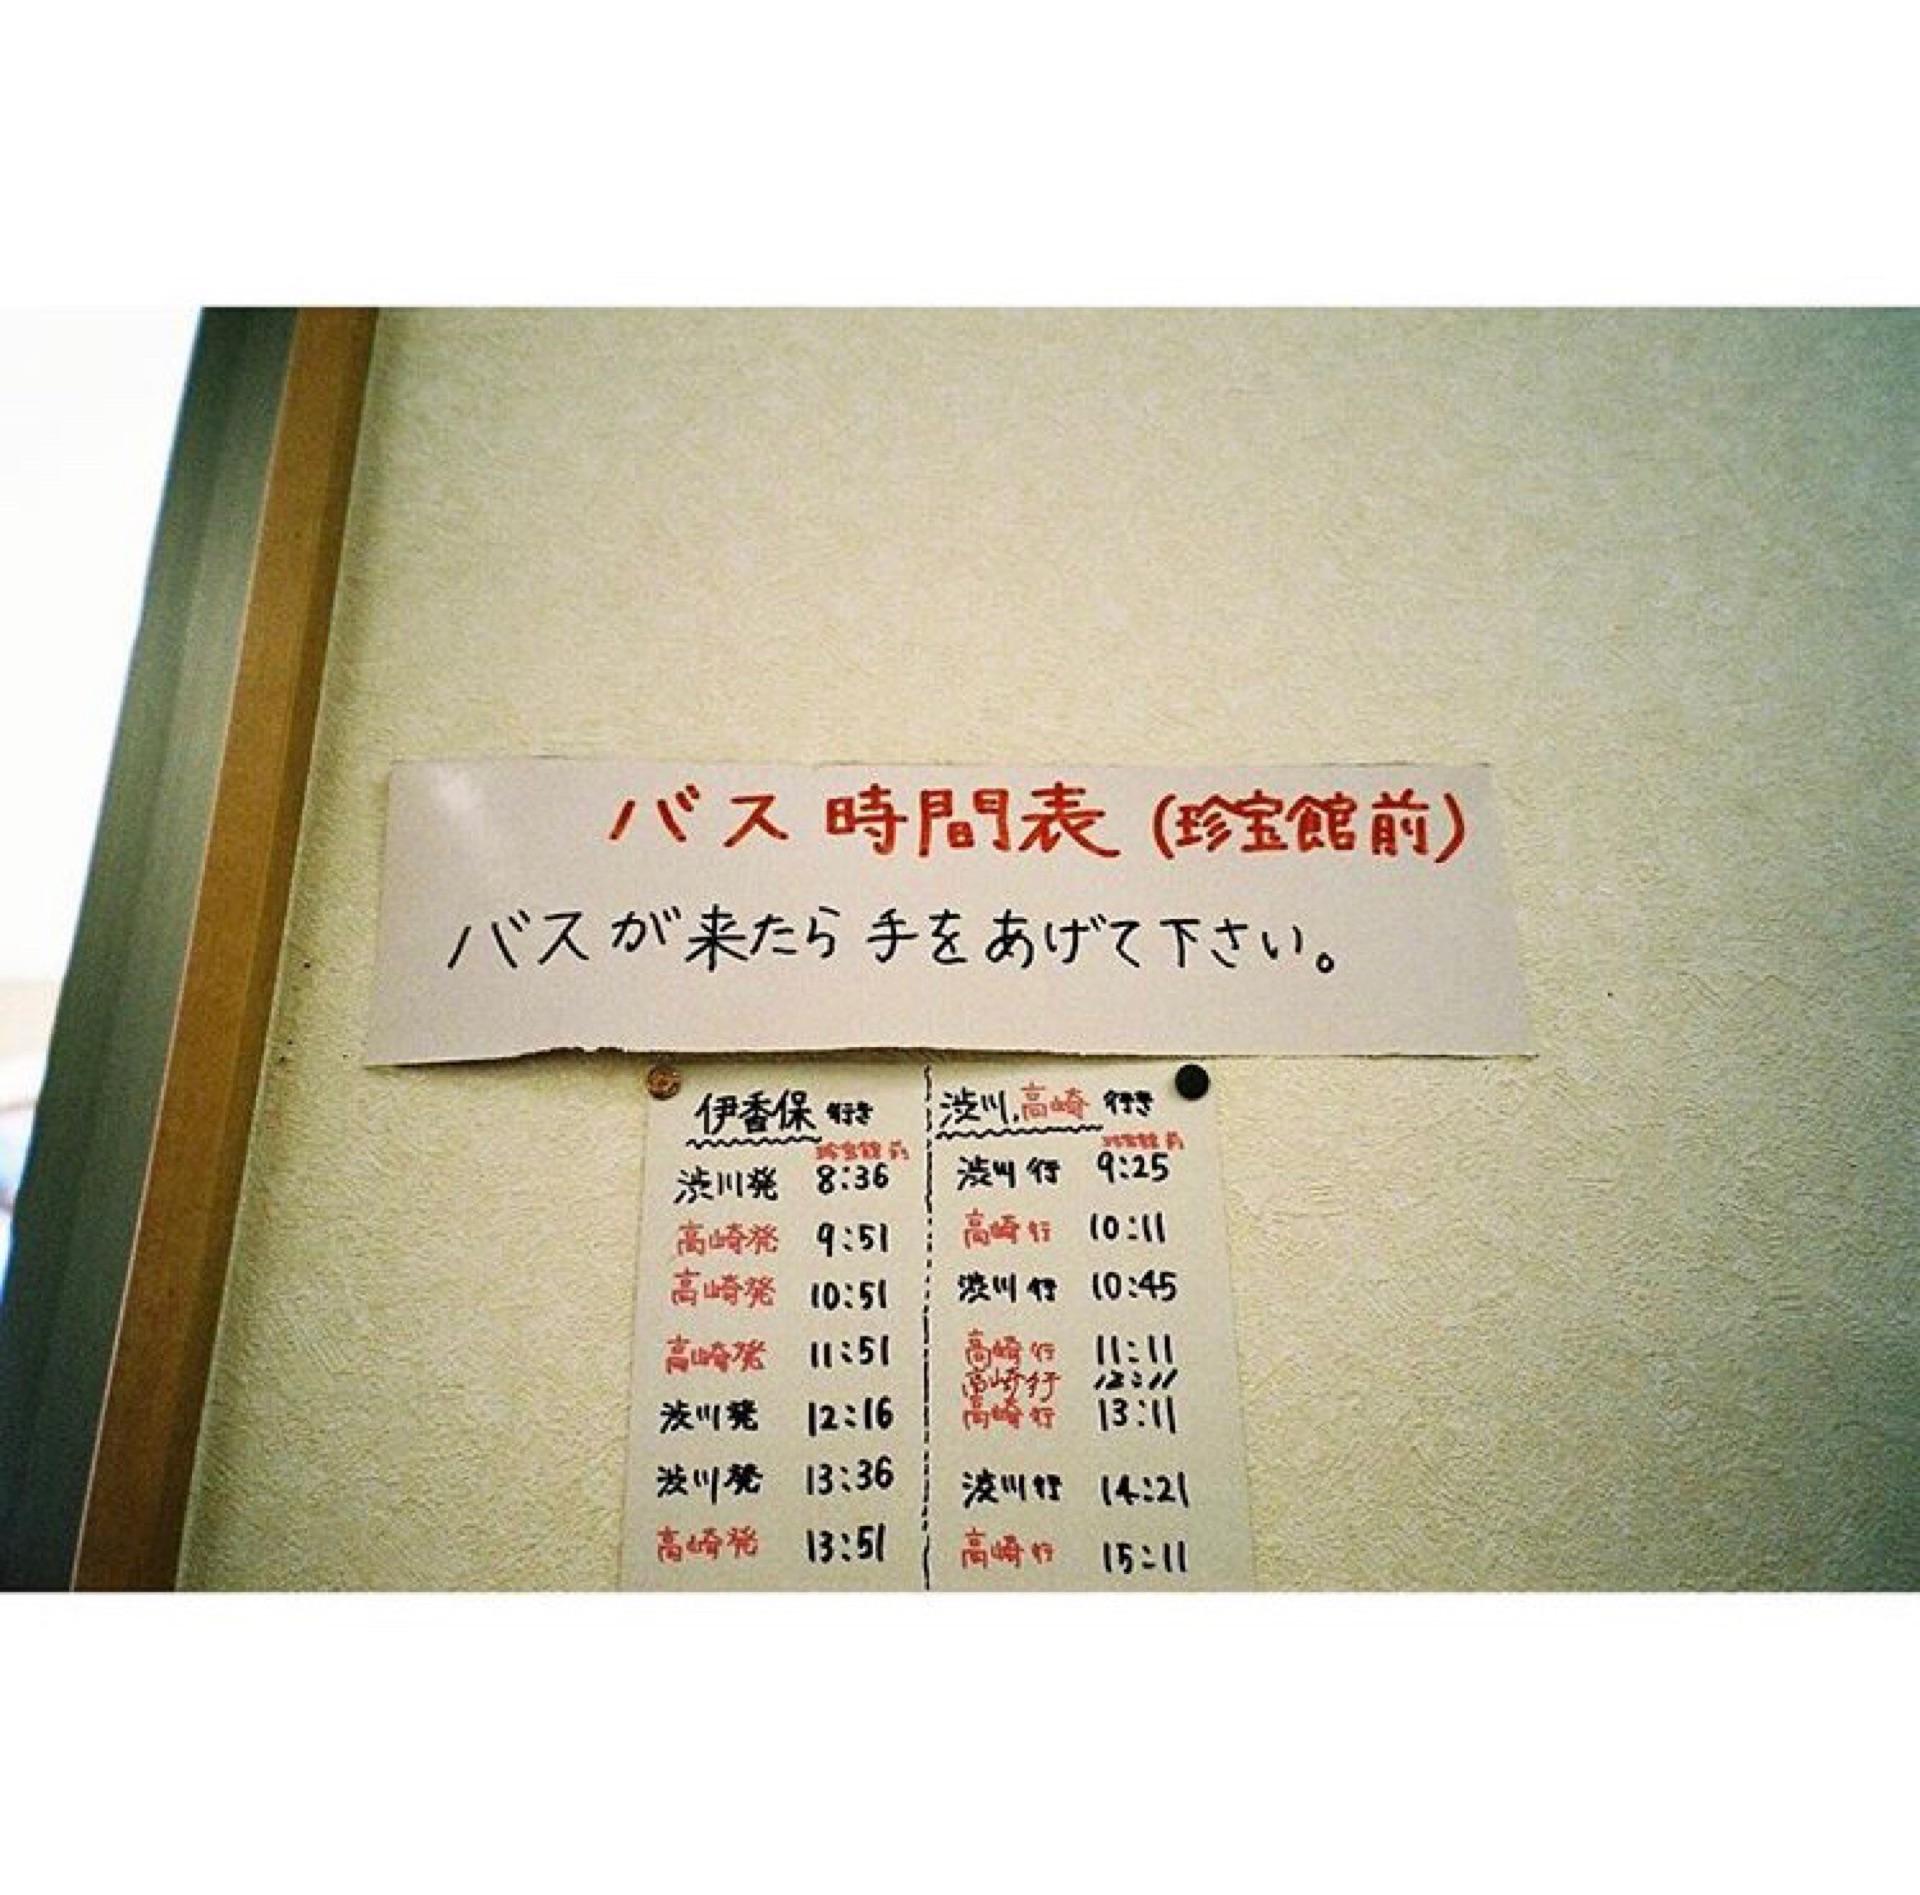 バス時間表(珍宝館前)
バスが来たら手をあげて下さい。
伊香保 行き
珍宝館前
渋川発 8:36
高崎発 9:51
高崎発 10:51
高崎発 11:51
渋川発 12:16
渋川発 13:36
高崎発 13:51
渋川.高崎 行き
珍宝館前
渋川行 9:25
高崎行 10:11
渋川行 10:45
高崎行 11:11
高崎行 12:11
高崎行 13:11
渋川行 14:21
高崎行 15:11